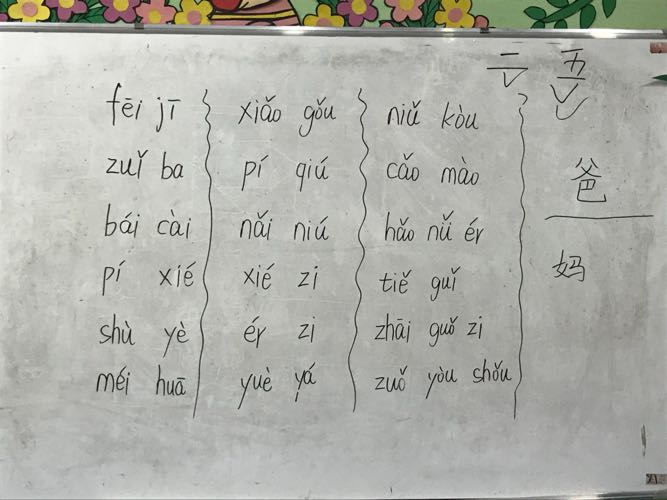 fēi jī
zuǐ ba
bái cài
pí xié
shù yè
méi huā
xiǎo gǒu
pí qiú
nǎi niú
xié zi
ér zi
yuè yá
niǔ kòu
cǎo mào
hǎo nǚ ér
tiě guǐ
zhāi guǒ zi
zuǒ yòu shǒu
二 五
爸
妈